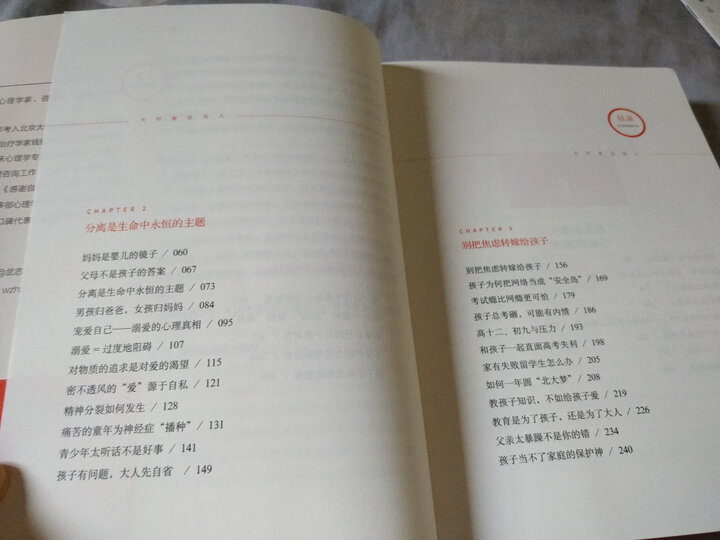 心理学家、咨
考入北京大
治疗学家钱
末心理学专
咨询工作
《感谢自
多部心理学
口碑代表
@武志
wzh
CHAPTER 2
分离是生命中永恒的主题
妈妈是婴儿的镜子 / 060
父母不是孩子的答案 / 067
分离是生命中永恒的主题 / 073
男孩归爸爸,女孩归妈妈 / 084
宠爱自己——溺爱的心理真相 / 095
溺爱＝过度地阻碍 / 107
对物质的追求是对爱的渴望 / 115
密不透风的“爱”源于自私 / 121
精神分裂如何发生 / 128
痛苦的童年为神经症“播种” / 131
青少年太听话不是好事 / 141
孩子有问题,大人先自省 / 149
目录
CHAPTER 3
别把焦虑转嫁给孩子
别把焦虑转嫁给孩子 / 156
孩子为何把网络当成“安全岛” / 169
考试瘾比网瘾更可怕 / 179
孩子总考砸,可能有内情 / 186
高十二、初九与压力 / 193
和孩子一起直面高考失利 / 198
家有失败留学生怎么办 / 205
如何一年圆“北大梦” / 208
教孩子知识,不如给孩子爱 / 219
教育是为了孩子,还是为了大人 / 226
父亲太暴躁不是你的错 / 234
孩子当不了家庭的保护神 / 240